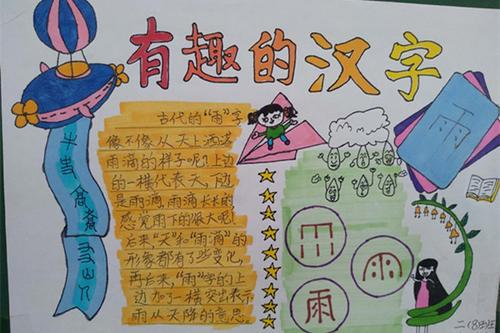 有趣的汉字
古代的“雨”字
像不像从天上洒落
雨滴的样子呢？上边
的一横代表天，下边
是雨滴，雨滴长长的
感觉雨下的很大呢！
后来“天”和“雨滴”的
形象都有了些变化，
再后来，“雨”字的上
边加了一横突出表示
雨从天降的意思。
雨
雨
二（8）班